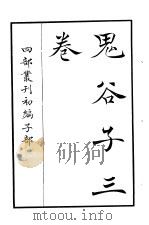 鬼谷子三
卷
四部叢刊初編子部
mtoou.info